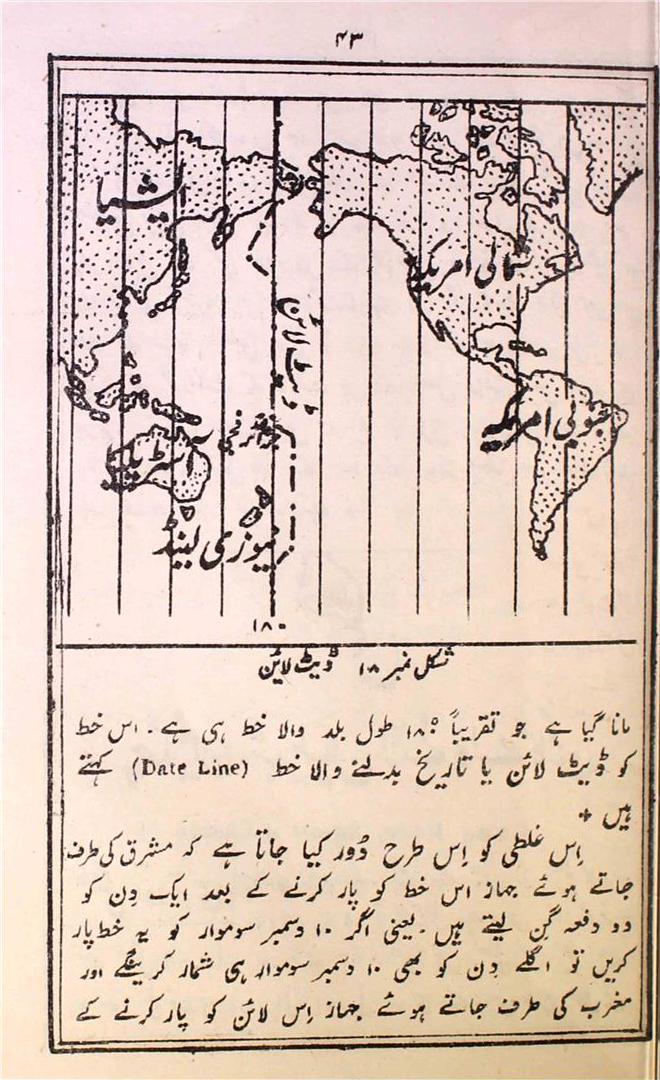 ۴۳
ایشیا
شمالی امریکہ
ڈیٹ لائن
جنوبی امریکہ
جزائر فجی
آسٹریلیا
نیوزی لینڈ
۱۸۰
شکل نمبر ۱۸ ڈیٹ لائن
مانا گیا ہے جو تقریباً ۱۸۰° طول بلد والا خط ہی ہے۔ اس خط
کو ڈیٹ لائن یا تاریخ بدلنے والا خط (Date Line) کہتے
ہیں +
اِس غلطی کو اِس طرح دُور کیا جاتا ہے کہ مشرق کی طرف
جاتے ہوئے جہاز اس خط کو پار کرنے کے بعد ایک دِن کو
دو دفعہ گِن لیتے ہیں۔ یعنی اگر ۱۰ دسمبر سوموار کو یہ خط پار
کریں تو اگلے دِن کو بھی ۱۰ دسمبر سوموار ہی شمار کرینگے اور
مغرب کی طرف جاتے ہوئے جہاز اِس لائن کو پار کرنے کے